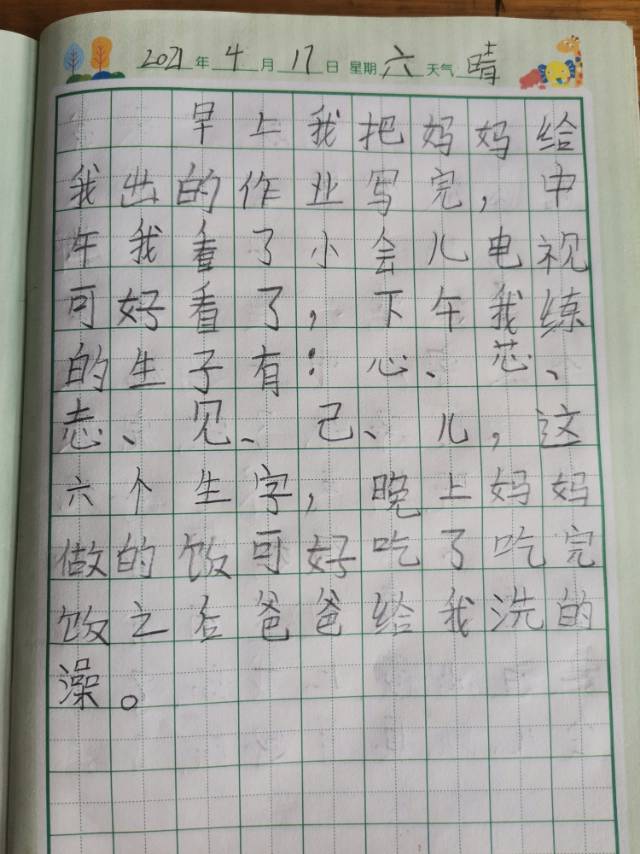 2021年4月17日 星期六 天气晴
早上我把妈妈给
我出的作业写完，中
午我看了小会儿电视
可好看了，下午我练
的生子有：心、芯、
志、见、己、儿，这
六个生字，晚上妈妈
做的饭可好吃了吃完
饭之后爸爸给我洗的
澡。